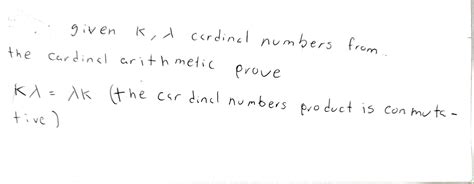 given K, λ cardinal numbers from
the cardinal arithmetic prove
Kλ = λK (the cardinal numbers product is conmuta-
tive)